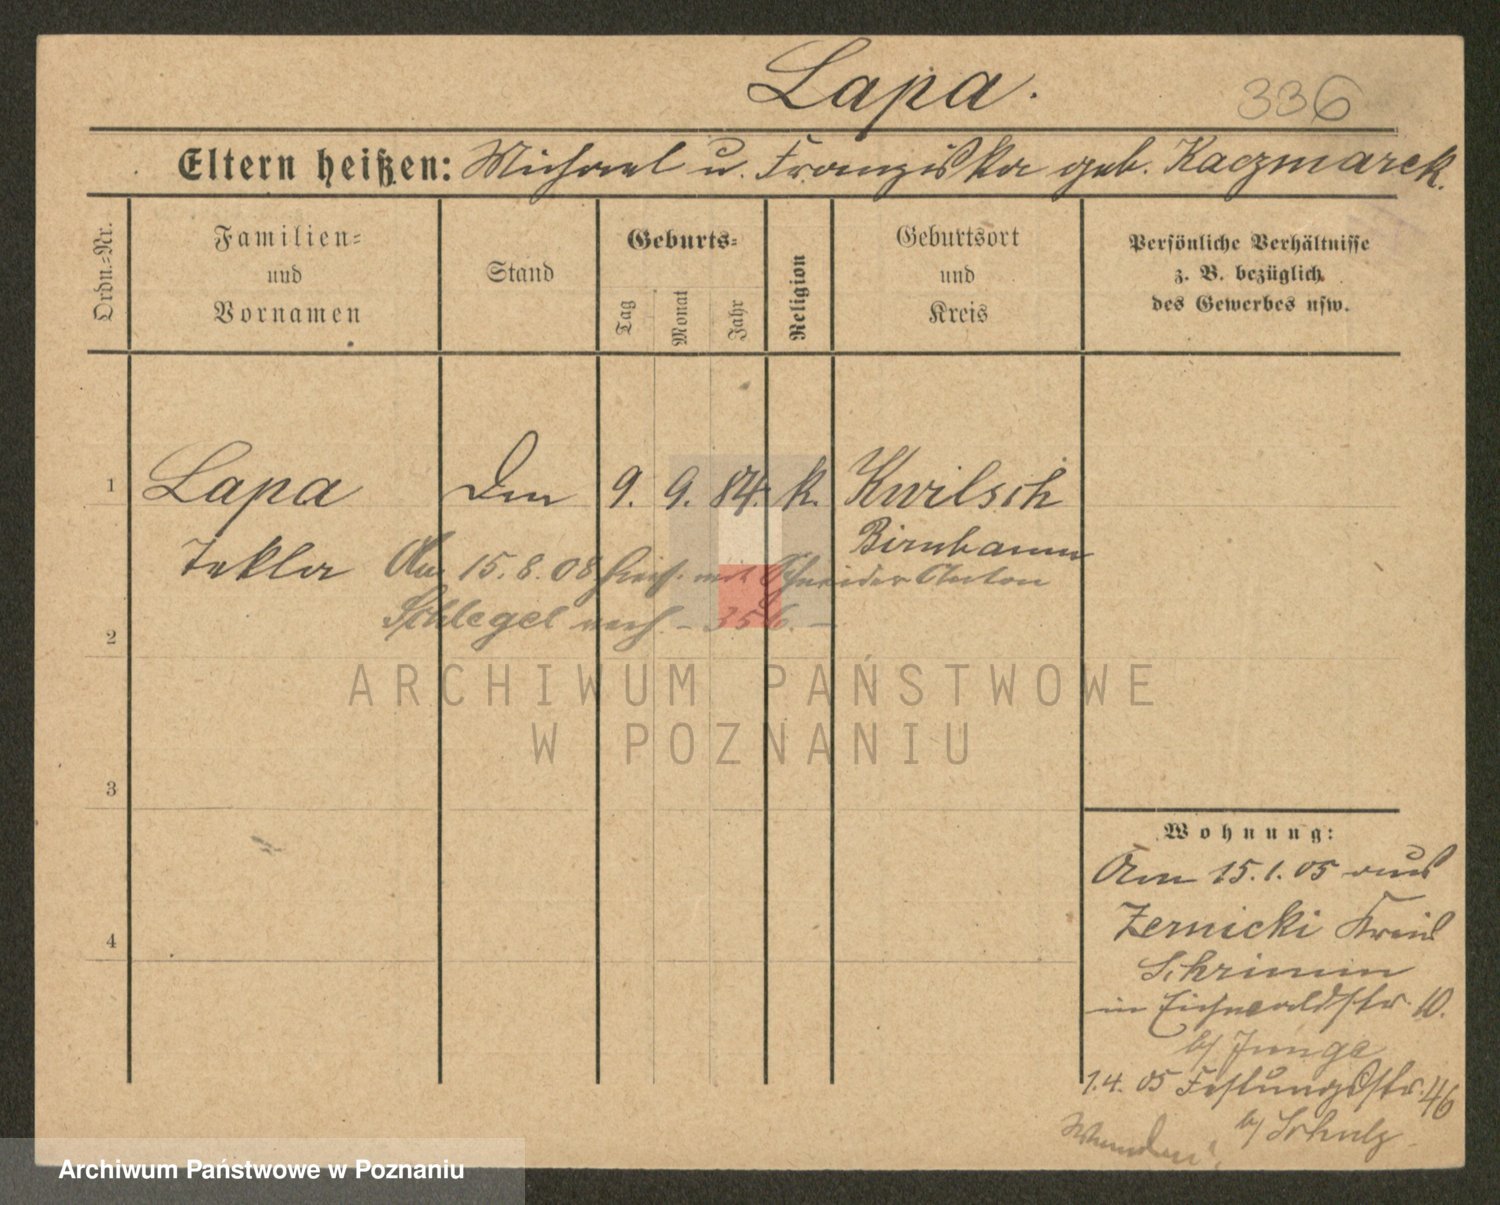 Lapa.
336
Eltern heißen: Michael u. Franziska geb. Kaczmarek.
Ordn.-Nr.
Familien-
und
Vornamen
Stand
Geburts-
Tag
Monat
Jahr
Religion
Geburtsort
und
Kreis
Persönliche Verhältnisse
z. B. bezüglich
des Gewerbes usw.
1
Lapa
9. 9. 84. k.
Kwilsch
Birnbaum
Tekla
Am 15.8.08 mit Schneider Anton
Schlegel
2
ARCHIWUM PAŃSTWOWE
W POZNANIU
3
Wohnung:
Am 15.1.05 aus
Zernicki Kreis
Schrimm
in Eichwaldstr. 10.
b/ Junge
1.4.05 Festungsstr. 46
b/ Schulz
4
Archiwum Państwowe w Poznaniu